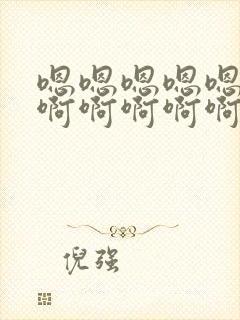 嗯嗯嗯嗯嗯
啊啊啊啊啊
倪强